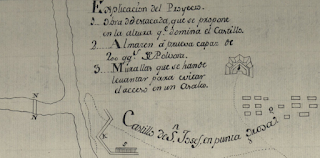 Explicacion del Proyecto.
1... Obra Destacada, que se propone
en la altura q.e domina el Castillo.
2... Almazen á prueva capaz de
200 qq.s de Polvora.
3... Murallas que se han de
levantar para evitar
el acceso en un Asalto.
Castillo de S.n Josef, en punta
N
N
e